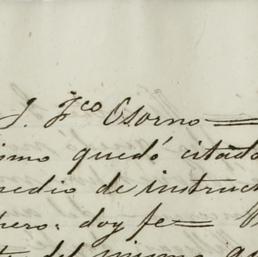 J. Fco Osorno
ismo quedó citado
medio de instruc
pero: doy fe
del mismo